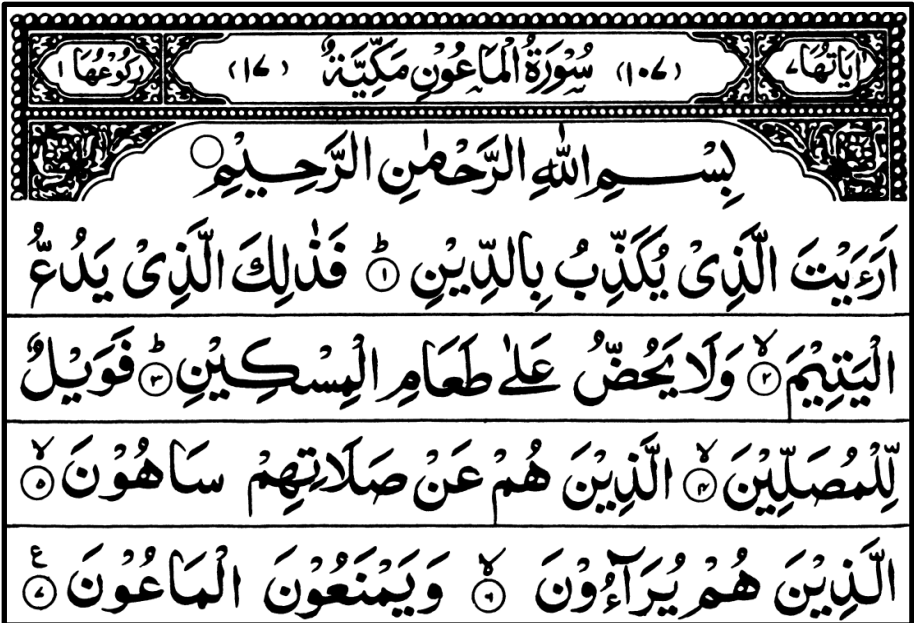 اٰيَاتُهَا ٧ (١٠٧) سُوْرَةُ الْمَاعُوْنِ مَكِّيَّةٌ (١٧) رُكُوْعُهَا ١
بِسْمِ اللّٰهِ الرَّحْمٰنِ الرَّحِيْمِ ۝
اَرَءَيْتَ الَّذِىْ يُكَذِّبُ بِالدِّيْنِ ؕ﴿١﴾ فَذٰلِكَ الَّذِىْ يَدُعُّ
الْيَتِيْمَ ۙ﴿٢﴾ وَلَا يَحُضُّ عَلٰى طَعَامِ الْمِسْكِيْنِ ؕ﴿٣﴾ فَوَيْلٌ
لِّلْمُصَلِّيْنَ ۙ﴿٤﴾ الَّذِيْنَ هُمْ عَنْ صَلَاتِهِمْ سَاهُوْنَ ۙ﴿٥﴾
الَّذِيْنَ هُمْ يُرَآءُوْنَ ۙ﴿٦﴾ وَيَمْنَعُوْنَ الْمَاعُوْنَ ﴿٧﴾ ع